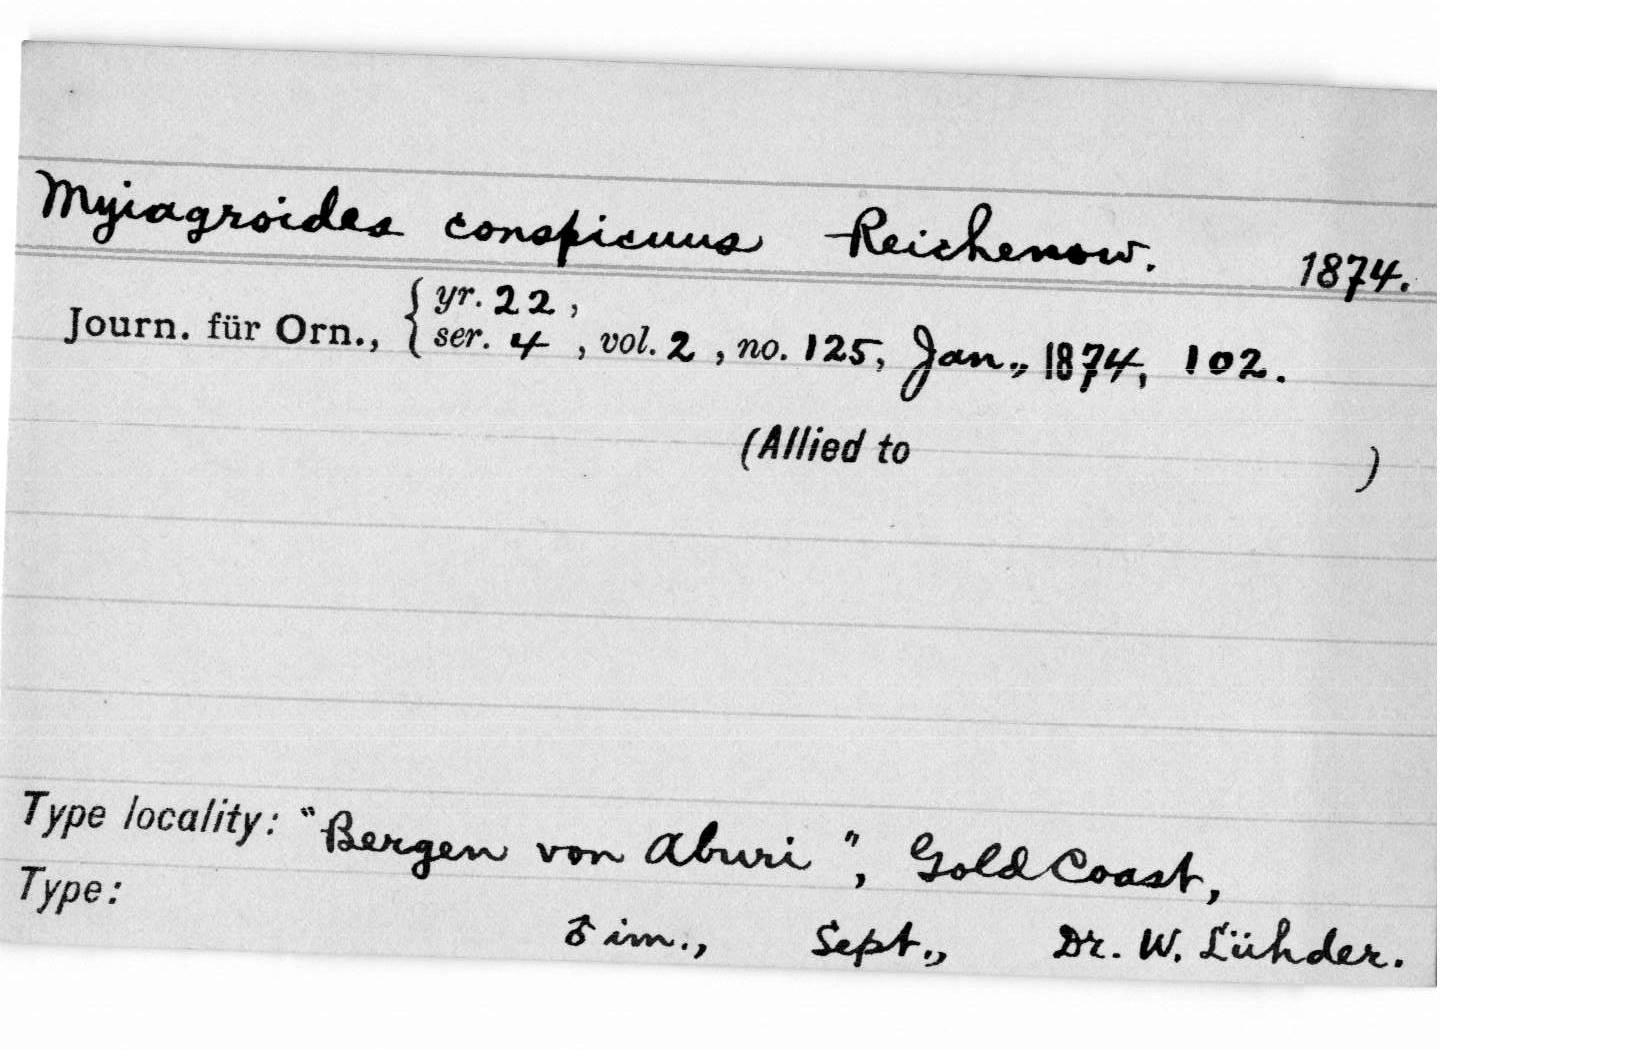 Myiagroides conspicuus Reichenow. 1874.
Journ. für Orn., { yr. 22,
ser. 4, vol. 2, no. 125, Jan., 1874, 102.
(Allied to )
Type locality: "Bergen von Aburi", Gold Coast,
Type:
♂ im., Sept., Dr. W. Lühder.